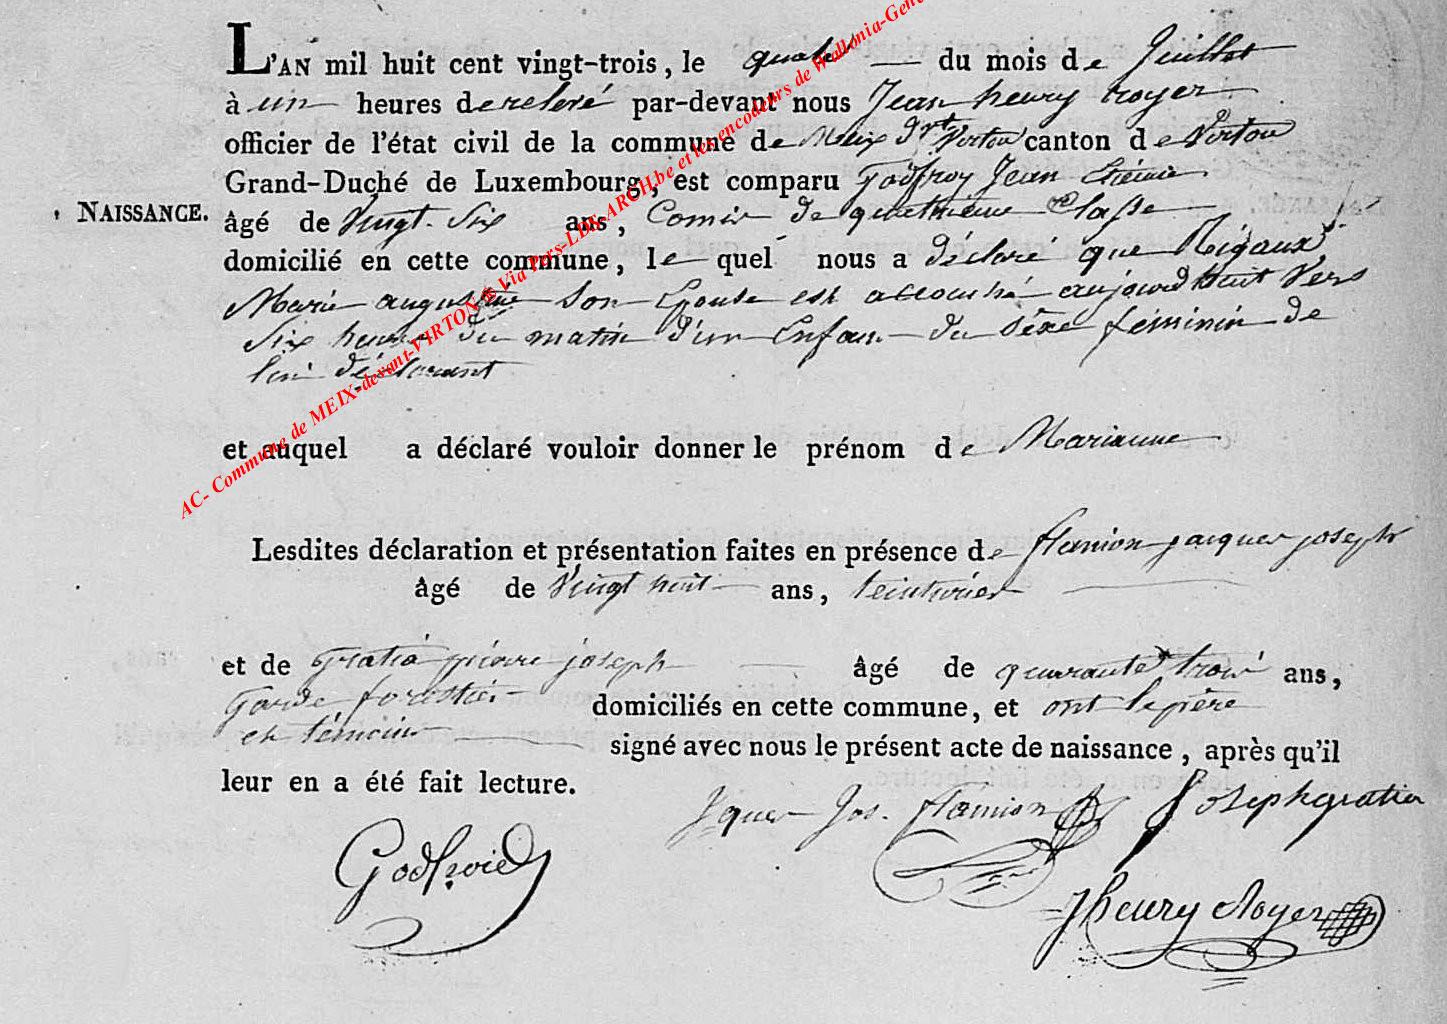 L'AN mil huit cent vingt-trois, le quatre du mois de Juillet
à un heures de relevé par-devant nous Jean henry royer
officier de l'état civil de la commune de Meix dvt Virton canton de Virton
Grand-Duché de Luxembourg, est comparu Godfroy Jean Etienne
NAISSANCE.
âgé de Vingt-Six ans, Comis de quatrieme Classe
domicilié en cette commune, le quel nous a déclaré que Rigaux
Marie augustine Son Epouse est accouché aujourd'huit Vers
Six heures du matin d'un Enfant du Sèxe féminin de
lui déclarant
et auquel a déclaré vouloir donner le prénom de Marianne
Lesdites déclaration et présentation faites en présence de flamion jacques joseph
âgé de Vingt huit ans, teinturier
et de gratia pierre joseph âgé de quarante trois ans,
garde forestier domiciliés en cette commune, et ont le père
et témoins signé avec nous le présent acte de naissance, après qu'il
leur en a été fait lecture.
Jaques Jos. flamion Joseph gratia
Godfroid
J henry Royer
AC- Commune de MEIX-devant-VIRTON & Via Pers-LDS-ARCH.be et les encodeurs de Wallonia-Gene